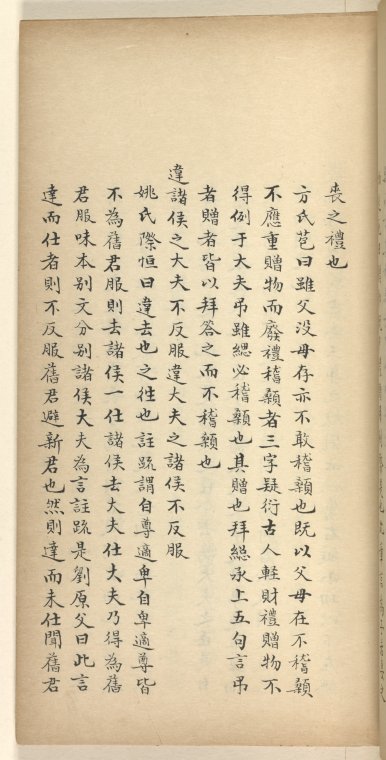 喪之禮也
方氏苞曰雖父没母存亦不敢稽顙也既以父母在不稽顙
不應重贈物而廢禮稽顙者三字疑衍古人輕財禮贈物不
得例于大夫弔雖緦必稽顙也其贈也拜總承上五句言弔
者贈者皆以拜答之而不稽顙也
違諸侯之大夫不反服違大夫之諸侯不反服
姚氏際恒曰違去也之往也註疏謂自尊適卑自卑適尊皆
不為舊君服則去諸侯一仕諸侯去大夫仕大夫乃得為舊
君服味本别文分别諸侯大夫為言註疏是劉原父曰此言
違而仕者則不反服舊君避新君也然則違而未仕聞舊君